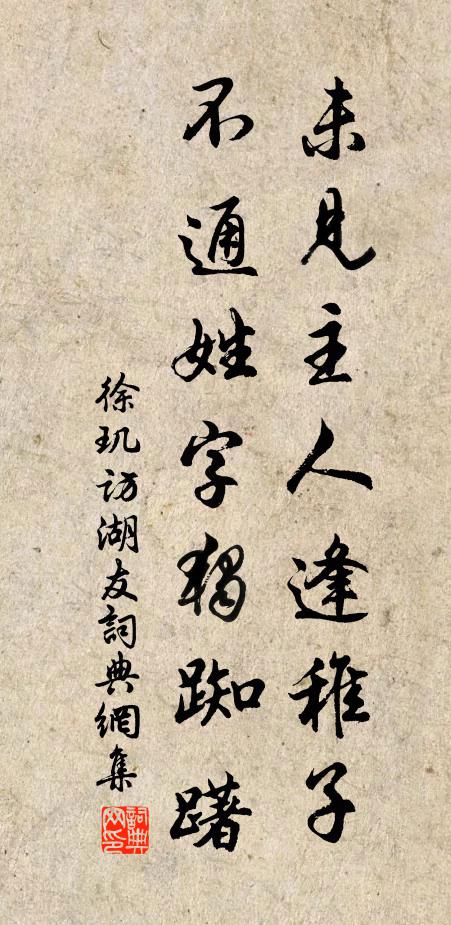 未見主人逢稚子
不通姓字獨踟躇
徐玑访湖友詞典網集
詞典網印